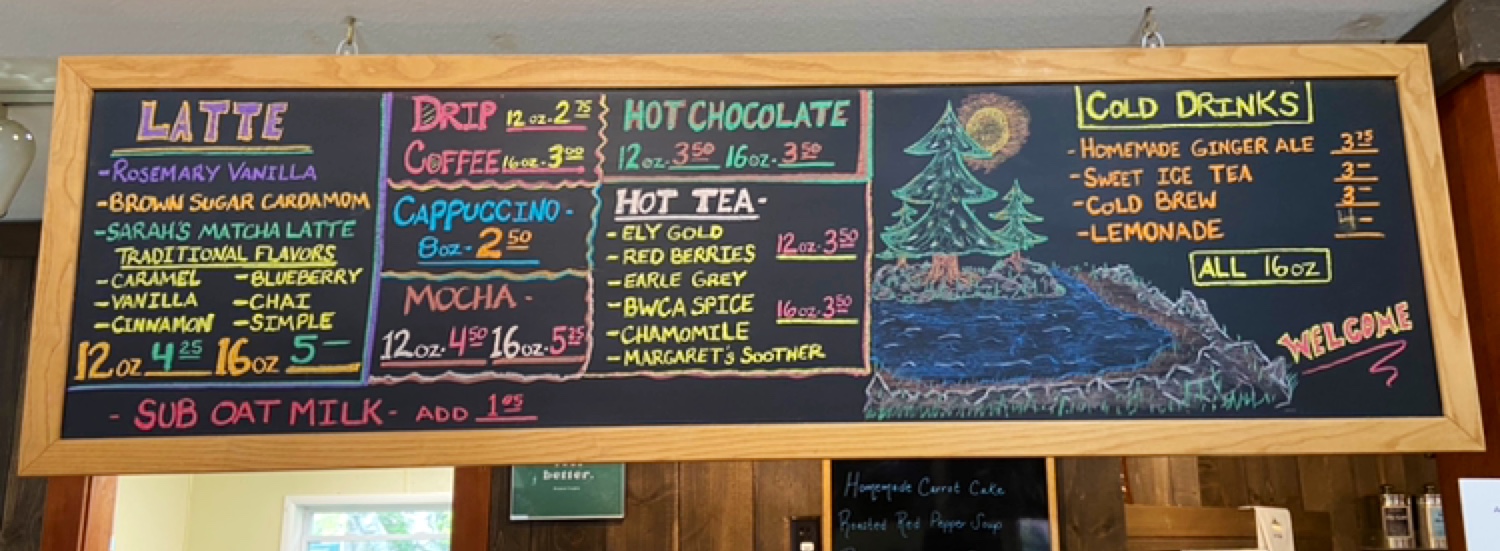 LATTE
-ROSEMARY VANILLA
-BROWN SUGAR CARDAMOM
-SARAH'S MATCHA LATTE
TRADITIONAL FLAVORS
-CARAMEL -BLUEBERRY
-VANILLA -CHAI
-CINNAMON -SIMPLE
12oz 4 25 16oz 5-
- SUB OAT MILK - ADD
DRIP 12oz.2 75
COFFEE 16oz.3 00
CAPPUCCINO-
8oz-2 50
MOCHA-
12oz.4 50 16oz.5 25
HOT CHOCOLATE
12oz.3 50 16oz.3 50
HOT TEA-
-ELY GOLD
-RED BERRIES 12oz.3 50
-EARLE GREY
-BWCA SPICE 16oz.3 50
-CHAMOMILE
-MARGARET'S SOOTHER
COLD DRINKS
-HOMEMADE GINGER ALE 3 75
-SWEET ICE TEA 3-
-COLD BREW 3-
-LEMONADE 4-
ALL 16oz
WELCOME
better.
Homemade Carrot Cake
Roasted Red Pepper Soup